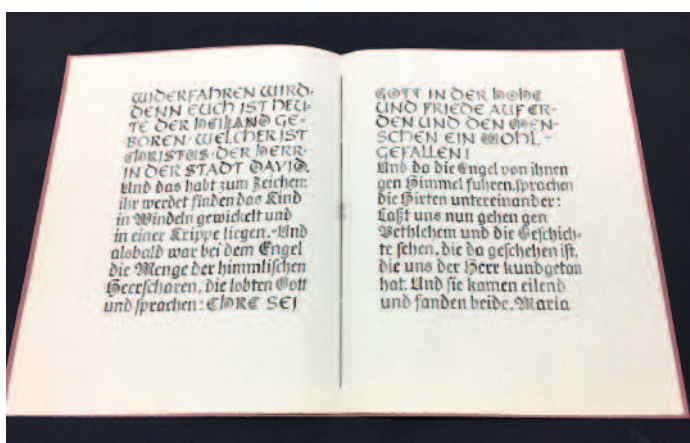 WIDERFAHREN WIRD·
DENN EUCH IST HEU-
TE DER HEILAND GE-
BOREN· WELCHER IST
CHRISTUS· DER HERR·
IN DER STADT DAVID.
Und das habt zum Zeichen:
ihr werdet finden das Kind
in Windeln gewickelt und
in einer Krippe liegen.-Und
alsbald war bei dem Engel
die Menge der himmlischen
Heerscharen, die lobten Gott
und sprachen: EHRE SEI
GOTT IN DER HOHE
UND FRIEDE AUF ER-
DEN UND DEN MEN-
SCHEN EIN WOHL-
GEFALLEN!
Und da die Engel von ihnen
gen Himmel fuhren, sprachen
die Hirten untereinander:
Laßt uns nun gehen gen
Bethlehem und die Geschich-
te sehen, die da geschehen ist,
die uns der Herr kundgetan
hat. Und sie kamen eilend
und fanden beide, Maria